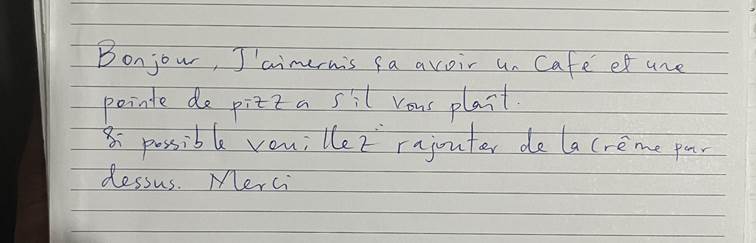 Bonjour, J'aimerais ça avoir un Café et une
pointe de pizza s'il vous plaît.
Si possible veuillez rajouter de la crême par
dessus. Merci